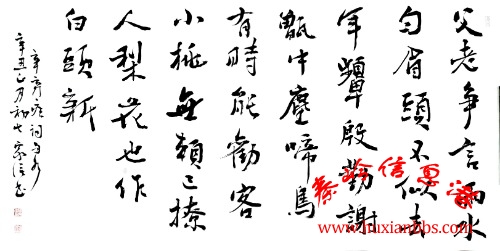 父老争言雨水
匀眉頭不似去
年顰殷勤謝
甑中塵啼鳥
有時能勸客
小桃無賴已撩
人梨花也作
白頭新
辛弃疾词
辛丑正月初七
www.huxianbbs.com